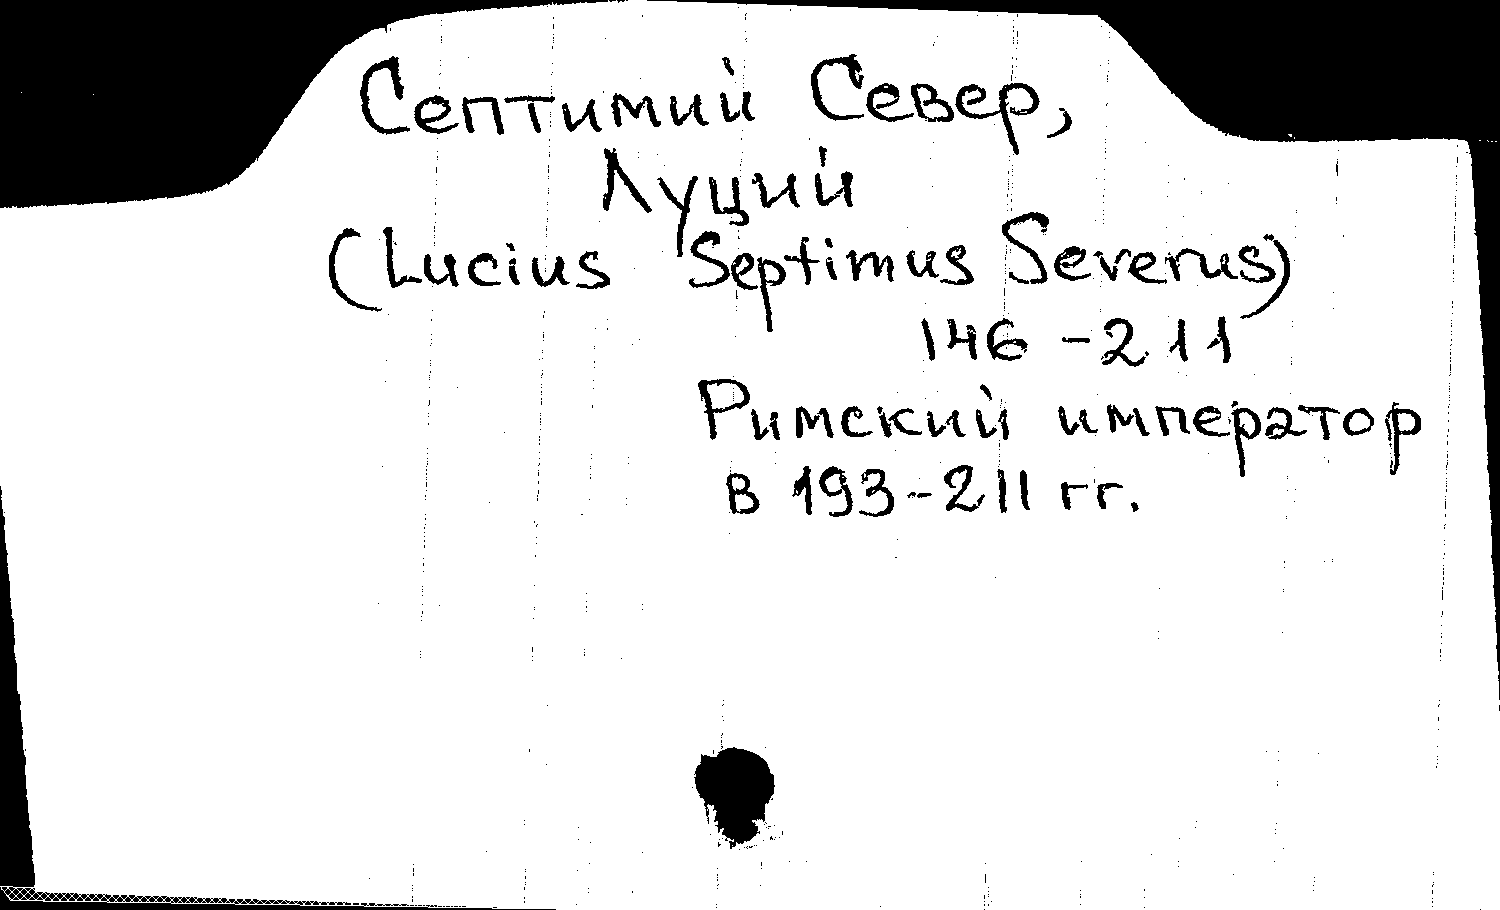 Септимий Север,
Луций
(Lucius Septimus Severus)
146-211
Римский император
в 193-211 гг.